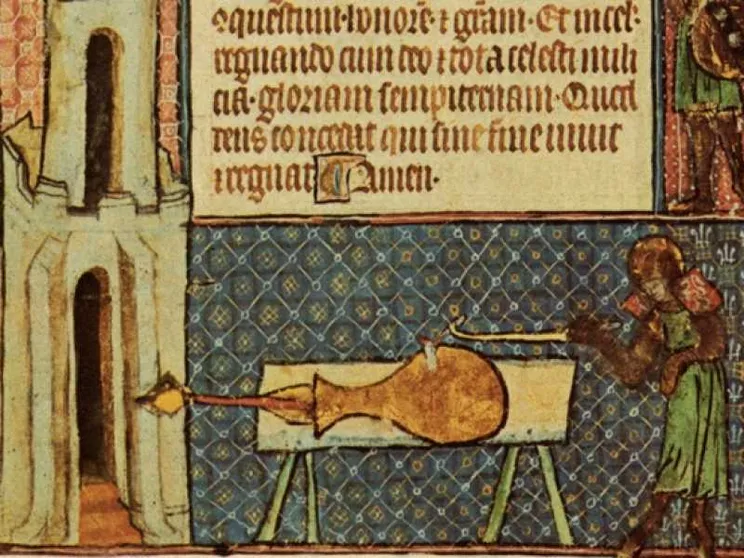 honorē·⁊ grām·Et in cel-
regnando cum deo ⁊ tota celesti mili
cia·gloriam sempiternam·Quod
deus concedat qui sine fine uiuit
⁊ regnat Amen·